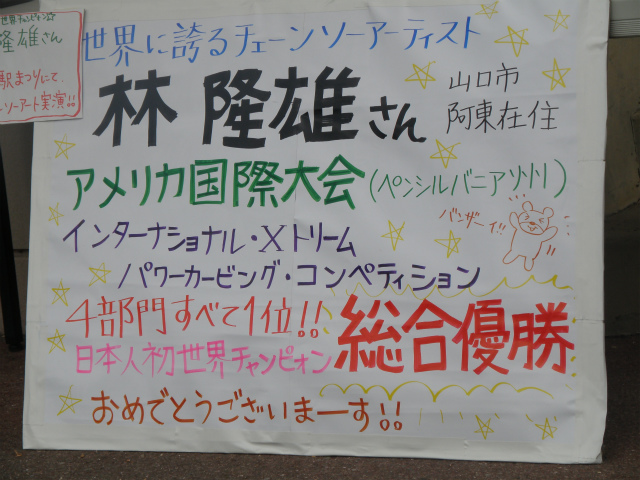 世界チャンピオン☆
隆雄さん
駅まつりにて、
ソーアート実演!!
世界に誇るチェーンソーアーティスト
林 隆雄さん
山口市
阿東在住
アメリカ国際大会(ペンシルバニアリジリ)
バンザーイ!!
インターナショナル・Xトリーム
パワーカービング・コンペティション
4部門すべて1位!!
日本人初世界チャンピオン
総合優勝
おめでとうございまーす!!